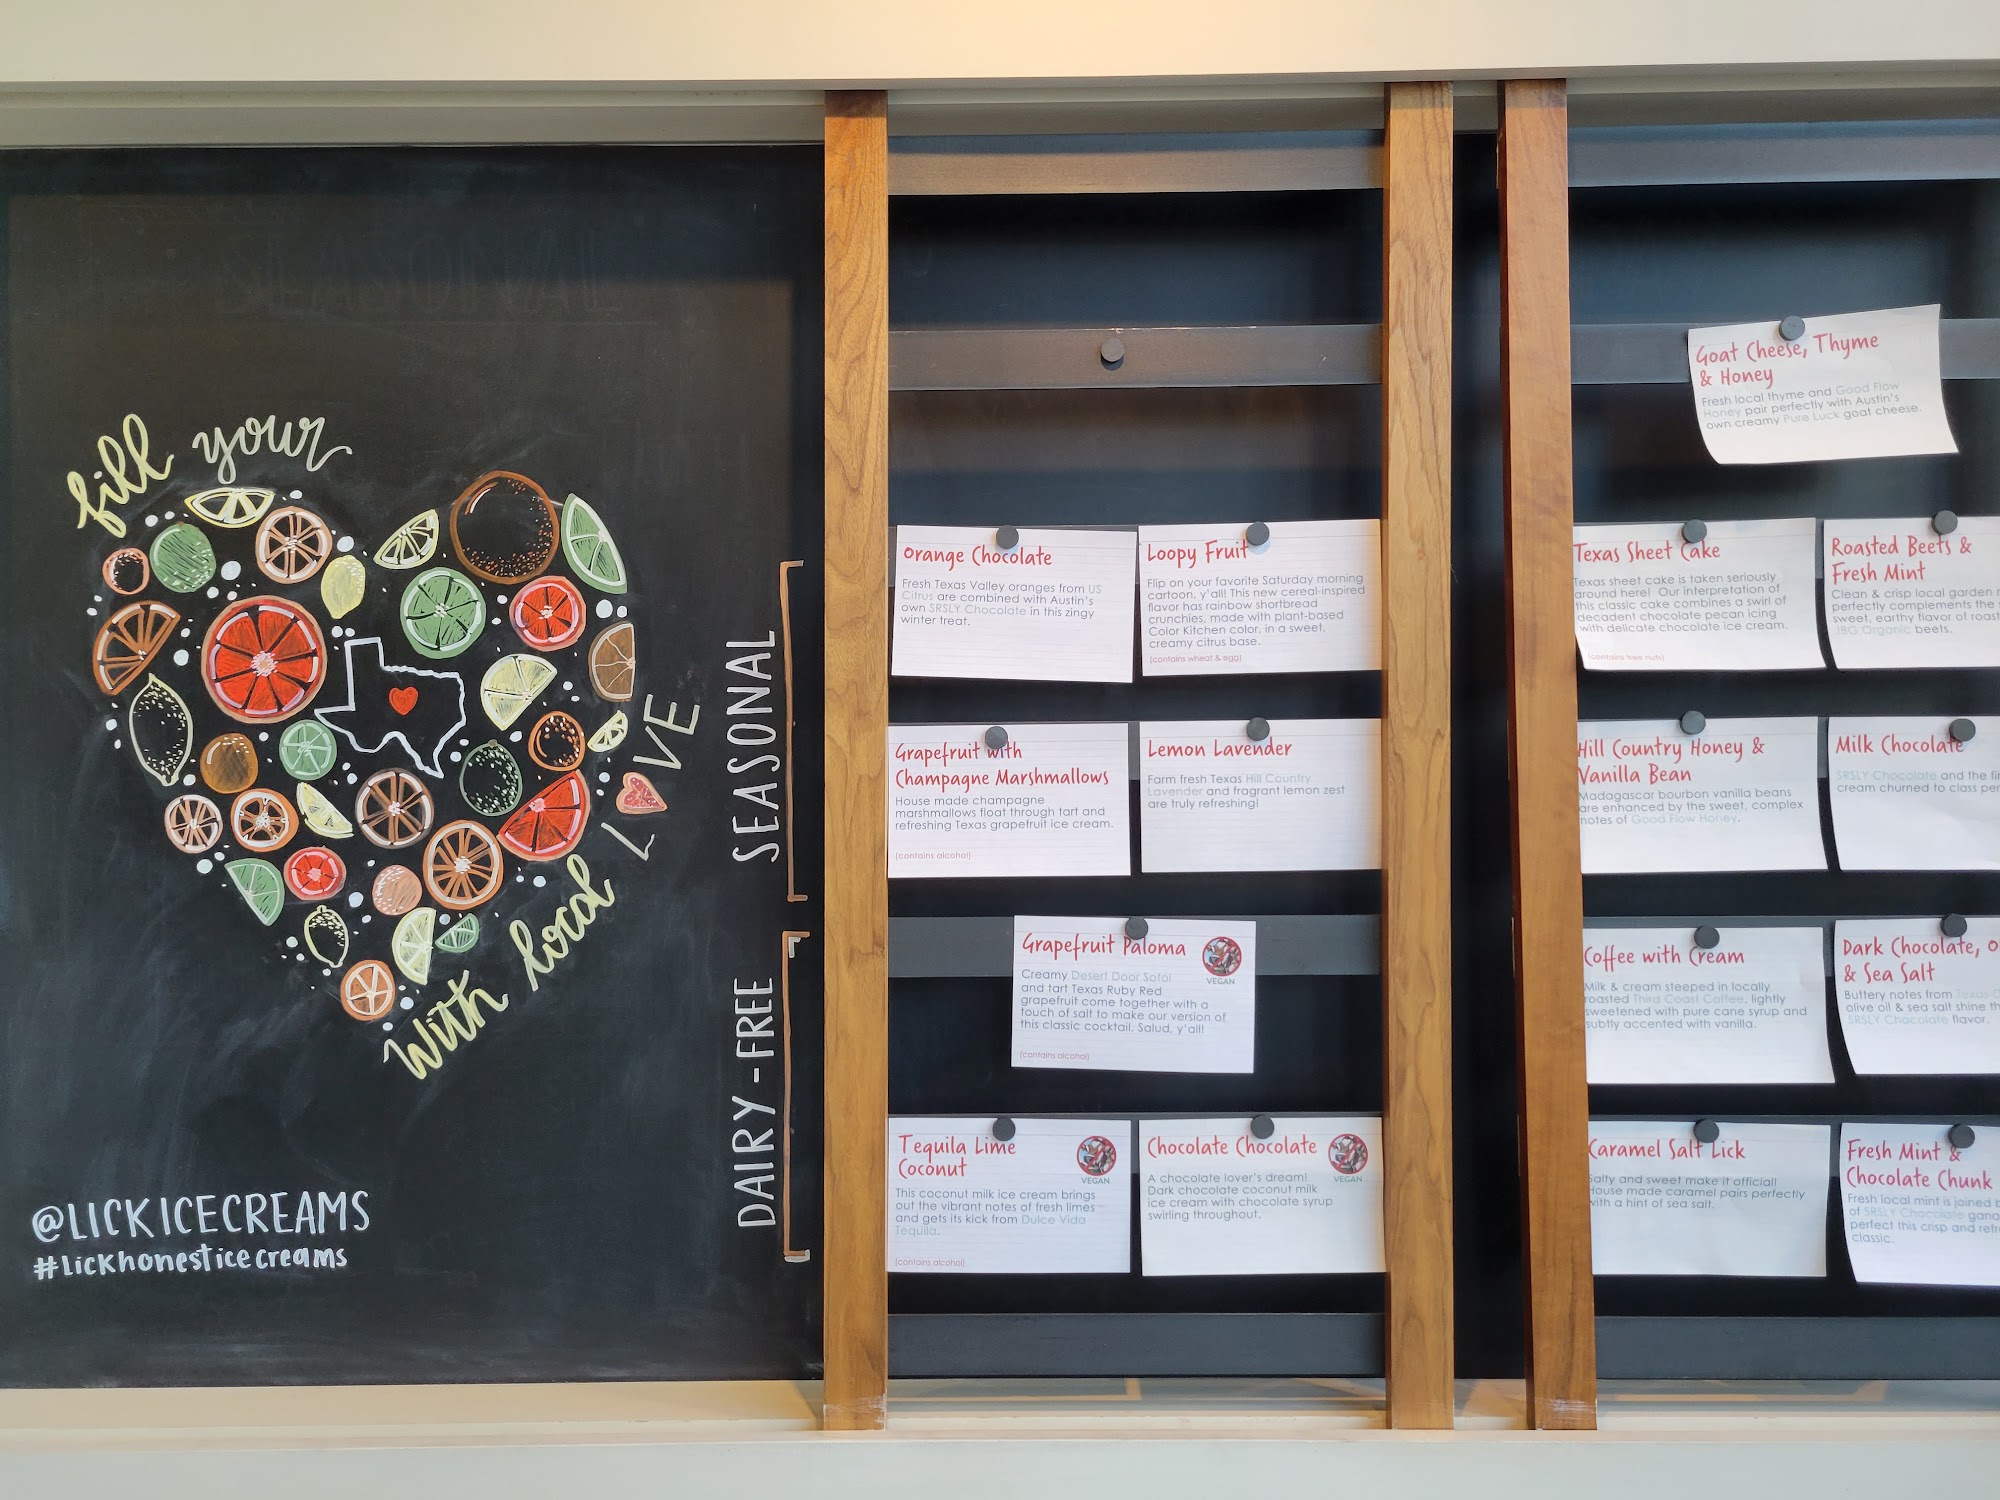 fill your
with local LOVE
@LICKICECREAMS
#lickhonesticecreams
SEASONAL
DAIRY-FREE
Orange Chocolate
Fresh Texas Valley oranges from US
Citrus are combined with Austin's
own SRSLY Chocolate in this zingy
winter treat.
Loopy Fruit
Flip on your favorite Saturday morning
cartoon, y'all! This new cereal-inspired
flavor has rainbow shortbread
crunchies, made with plant-based
Color Kitchen color, in a sweet,
creamy citrus base.
(contains wheat & egg)
Grapefruit with
Champagne Marshmallows
House made champagne
marshmallows float through tart and
refreshing Texas grapefruit ice cream.
(contains alcohol)
Lemon Lavender
Farm fresh Texas Hill Country
Lavender and fragrant lemon zest
are truly refreshing!
Grapefruit Paloma
VEGAN
Creamy Desert Door Sotol
and tart Texas Ruby Red
grapefruit come together with a
touch of salt to make our version of
this classic cocktail. Salud, y'all!
(contains alcohol)
Tequila Lime
Coconut
VEGAN
This coconut milk ice cream brings
out the vibrant notes of fresh limes
and gets its kick from Dulce Vida
Tequila.
(contains alcohol)
Chocolate Chocolate
VEGAN
A chocolate lover's dream!
Dark chocolate coconut milk
ice cream with chocolate syrup
swirling throughout.
Goat Cheese, Thyme
& Honey
Fresh local thyme and Good Flow
Honey pair perfectly with Austin's
own creamy Pure Luck goat cheese.
Texas Sheet Cake
Texas sheet cake is taken seriously
around here! Our interpretation of
this classic cake combines a swirl of
decadent chocolate pecan icing
with delicate chocolate ice cream.
(contains tree nuts)
Roasted Beets &
Fresh Mint
Clean & crisp local garden
perfectly complements the
sweet, earthy flavor of
JBG Organic beets.
Hill Country Honey &
Vanilla Bean
Madagascar bourbon vanilla beans
are enhanced by the sweet, complex
notes of Good Flow Honey.
Milk Chocolate
SRSLY Chocolate and the
cream churned to class
Coffee with Cream
Milk & cream steeped in locally
roasted Third Coast Coffee, lightly
sweetened with pure cane syrup and
subtly accented with vanilla.
Dark Chocolate,
& Sea Salt
Buttery notes from Texas
olive oil & sea salt shine
SRSLY Chocolate flavor.
Caramel Salt Lick
Salty and sweet make it official!
House made caramel pairs perfectly
with a hint of sea salt.
Fresh Mint &
Chocolate Chunk
Fresh local mint is joined
of SRSLY Chocolate
perfect this crisp and
classic.